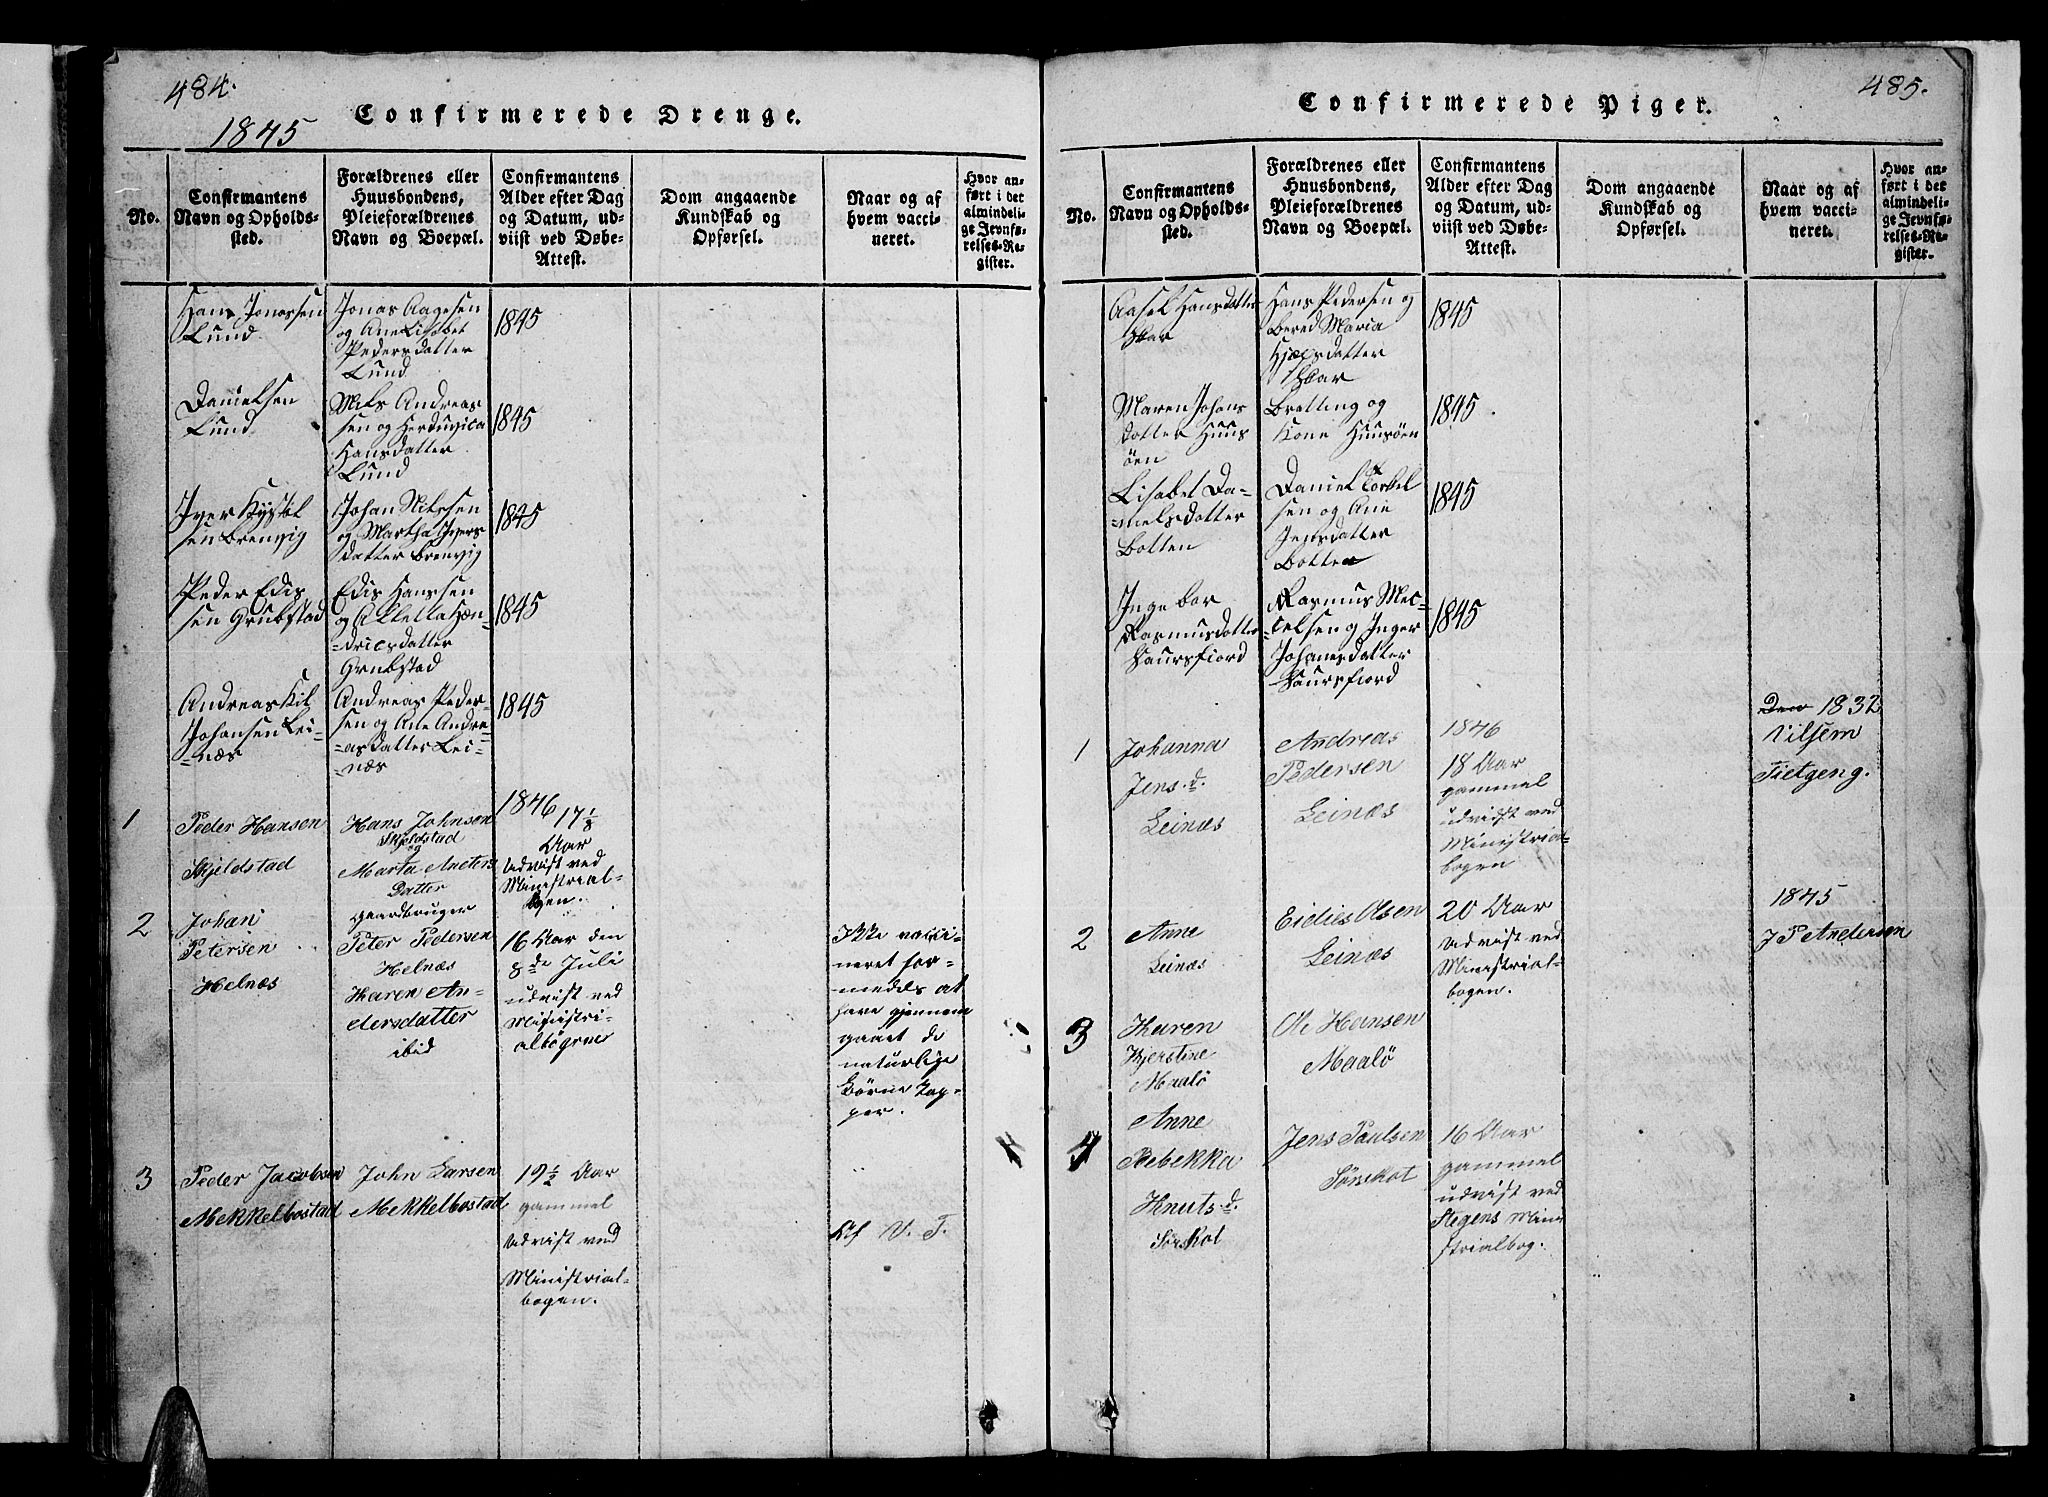 484.
1845
Confirmerede Drenge.
No.
Confirmantens
Navn og Opholds-
sted.
Forældrenes eller
Huusbondens,
Pleieforældrenes
Navn og Boepæl.
Confirmantens
Alder efter Dag
og Datum, ud-
viist ved Døbe-
Attest.
Dom angaaende
Kundskab og
Opførsel.
Naar og af
hvem vacci-
neret.
Hvor an-
ført i det
almindeli-
ge Jevnfø-
relses-Re-
gister.
Hans Jonassen
Lund
Jonas Aagesen
og Ane Lisabet
Pedersdatter
Lund
1845
Danielsen
Lund
Nils Andreas
sen og Herduvica
Hansdatter
Lund
1845
Iver Kystil
sen Brenvig
Johan Nilssen
og Martha Ivers
datter Brenvig
1845
Peder Edis
sen Grubstad
Edis Hanssen
og Alletta Hæn-
=dricsdatter
Grubstad
1845
Andreas Kil
Johansen Lei-
=næs
Andreas Peder-
sen og Ane Andre-
=asdatter Lei-
=næs
1845
1846
1
Peder Hansen
Skjeldstad
Hans Johnsen
Skjeldstad
og
Marta Anders
Datter
Gaardbruger
17 1/8
Aar
udvist ved
Ministrial-
bogen.
2
Johan
Petersen
Helnæs
Peter Pedersen
Helnæs
Karen An-
dersdatter
ibid
16 Aar den
8de Juli
udvist ved
Ministri-
albogen
Ikke vacci-
neret for-
medels at
have gjennem
gaaet de
naturlige
Børne kop-
per.
3
Peder Jacobsen
Mekkelbostad
John Larsen
Mekkelbostad
19 1/2 Aar
gammel
udvist ved
Ministrial-
bogen.
Af V. T.
485.
Confirmerede Piger.
No.
Confirmantens
Navn og Opholds-
sted.
Forældrenes eller
Huusbondens,
Pleieforældrenes
Navn og Boepæl.
Confirmantens
Alder efter Dag
og Datum, ud-
viist ved Døbe-
Attest.
Dom angaaende
Kundskab og
Opførsel.
Naar og af
hvem vacci-
neret.
Hvor an-
ført i det
almindeli-
ge Jevnfø-
relses-Re-
gister.
Aasel Hansdatter
Skar
Hans Pedersen og
Bered Maria
Hjælsdatter
Skar
1845
Maren Johans
datter Huus
øen
Bretting og
Kone Huusøen
1845
Lisabet Da-
=nielsdatter
Botten
Daniel Torkel
sen og Ane
Jensdatter
Botten
1845
Ingebor
Rasmusdatter
Saursfiord
Rasmus Mec-
=celsen og Inger
Johanesdatter
Saursfiord
1845
1
Johanna
Jens.d.
Leinæs
Andreas
Pedersen
Leinæs
1846
18 Aar
gammel
udvidst ved
Ministrial-
bogen
Den 1832
Vilhem
Tietgeng.
2
Anne
Leinæs
Eidies Olsen
Leinæs
20 Aar
udvist ved
Ministrial-
bogen.
1845
J P Andersen
3
Karen
Kjerstine
Maalö
Ole Hansen
Maalö
4
Anne
Rebekka
Knuts.d.
Sørskot
Jens Paulsen
Sørskot
16 Aar
gammel
udvist ved
Stegens Mini
strialbog.